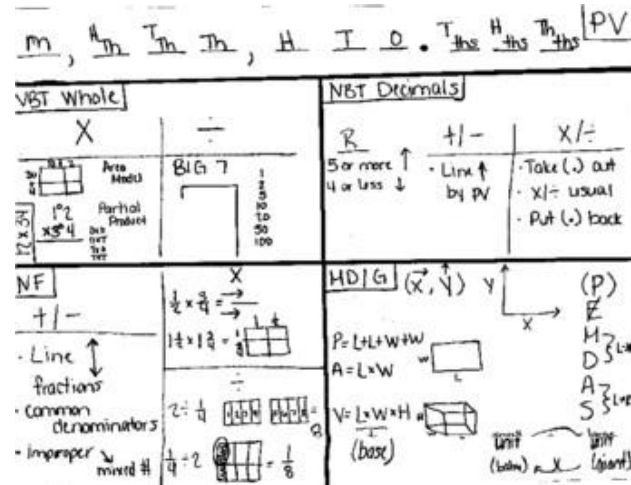 m, HTh TTh Th, H T O . Tths Hths Thths PV
NBT Whole
X ÷
Area Model
BIG 7
1
2
5
10
20
50
100
12 x 34
Partial Product
12
x34
OxO
OxT
TxO
TxT
NBT Decimals
R +/- X/÷
5 or more ↑
4 or less ↓
• Line ↑
by PV
• Take (.) out
• X/÷ usual
• Put (.) back
NF
+/-
• Line
fractions
• common
denominators
• Improper
mixed #
X
1/2 x 3/4 =
1 1/2 x 1 3/4 =
÷
2 ÷ 1/4
= 8
1/4 ÷ 2
= 1/8
MD/G (X, Y) Y
X
P=L+L+W+W
A=L×W
W
L
V=L×W×H
(base)
(P)
E
M
D
A
S
unit unit
(giant)